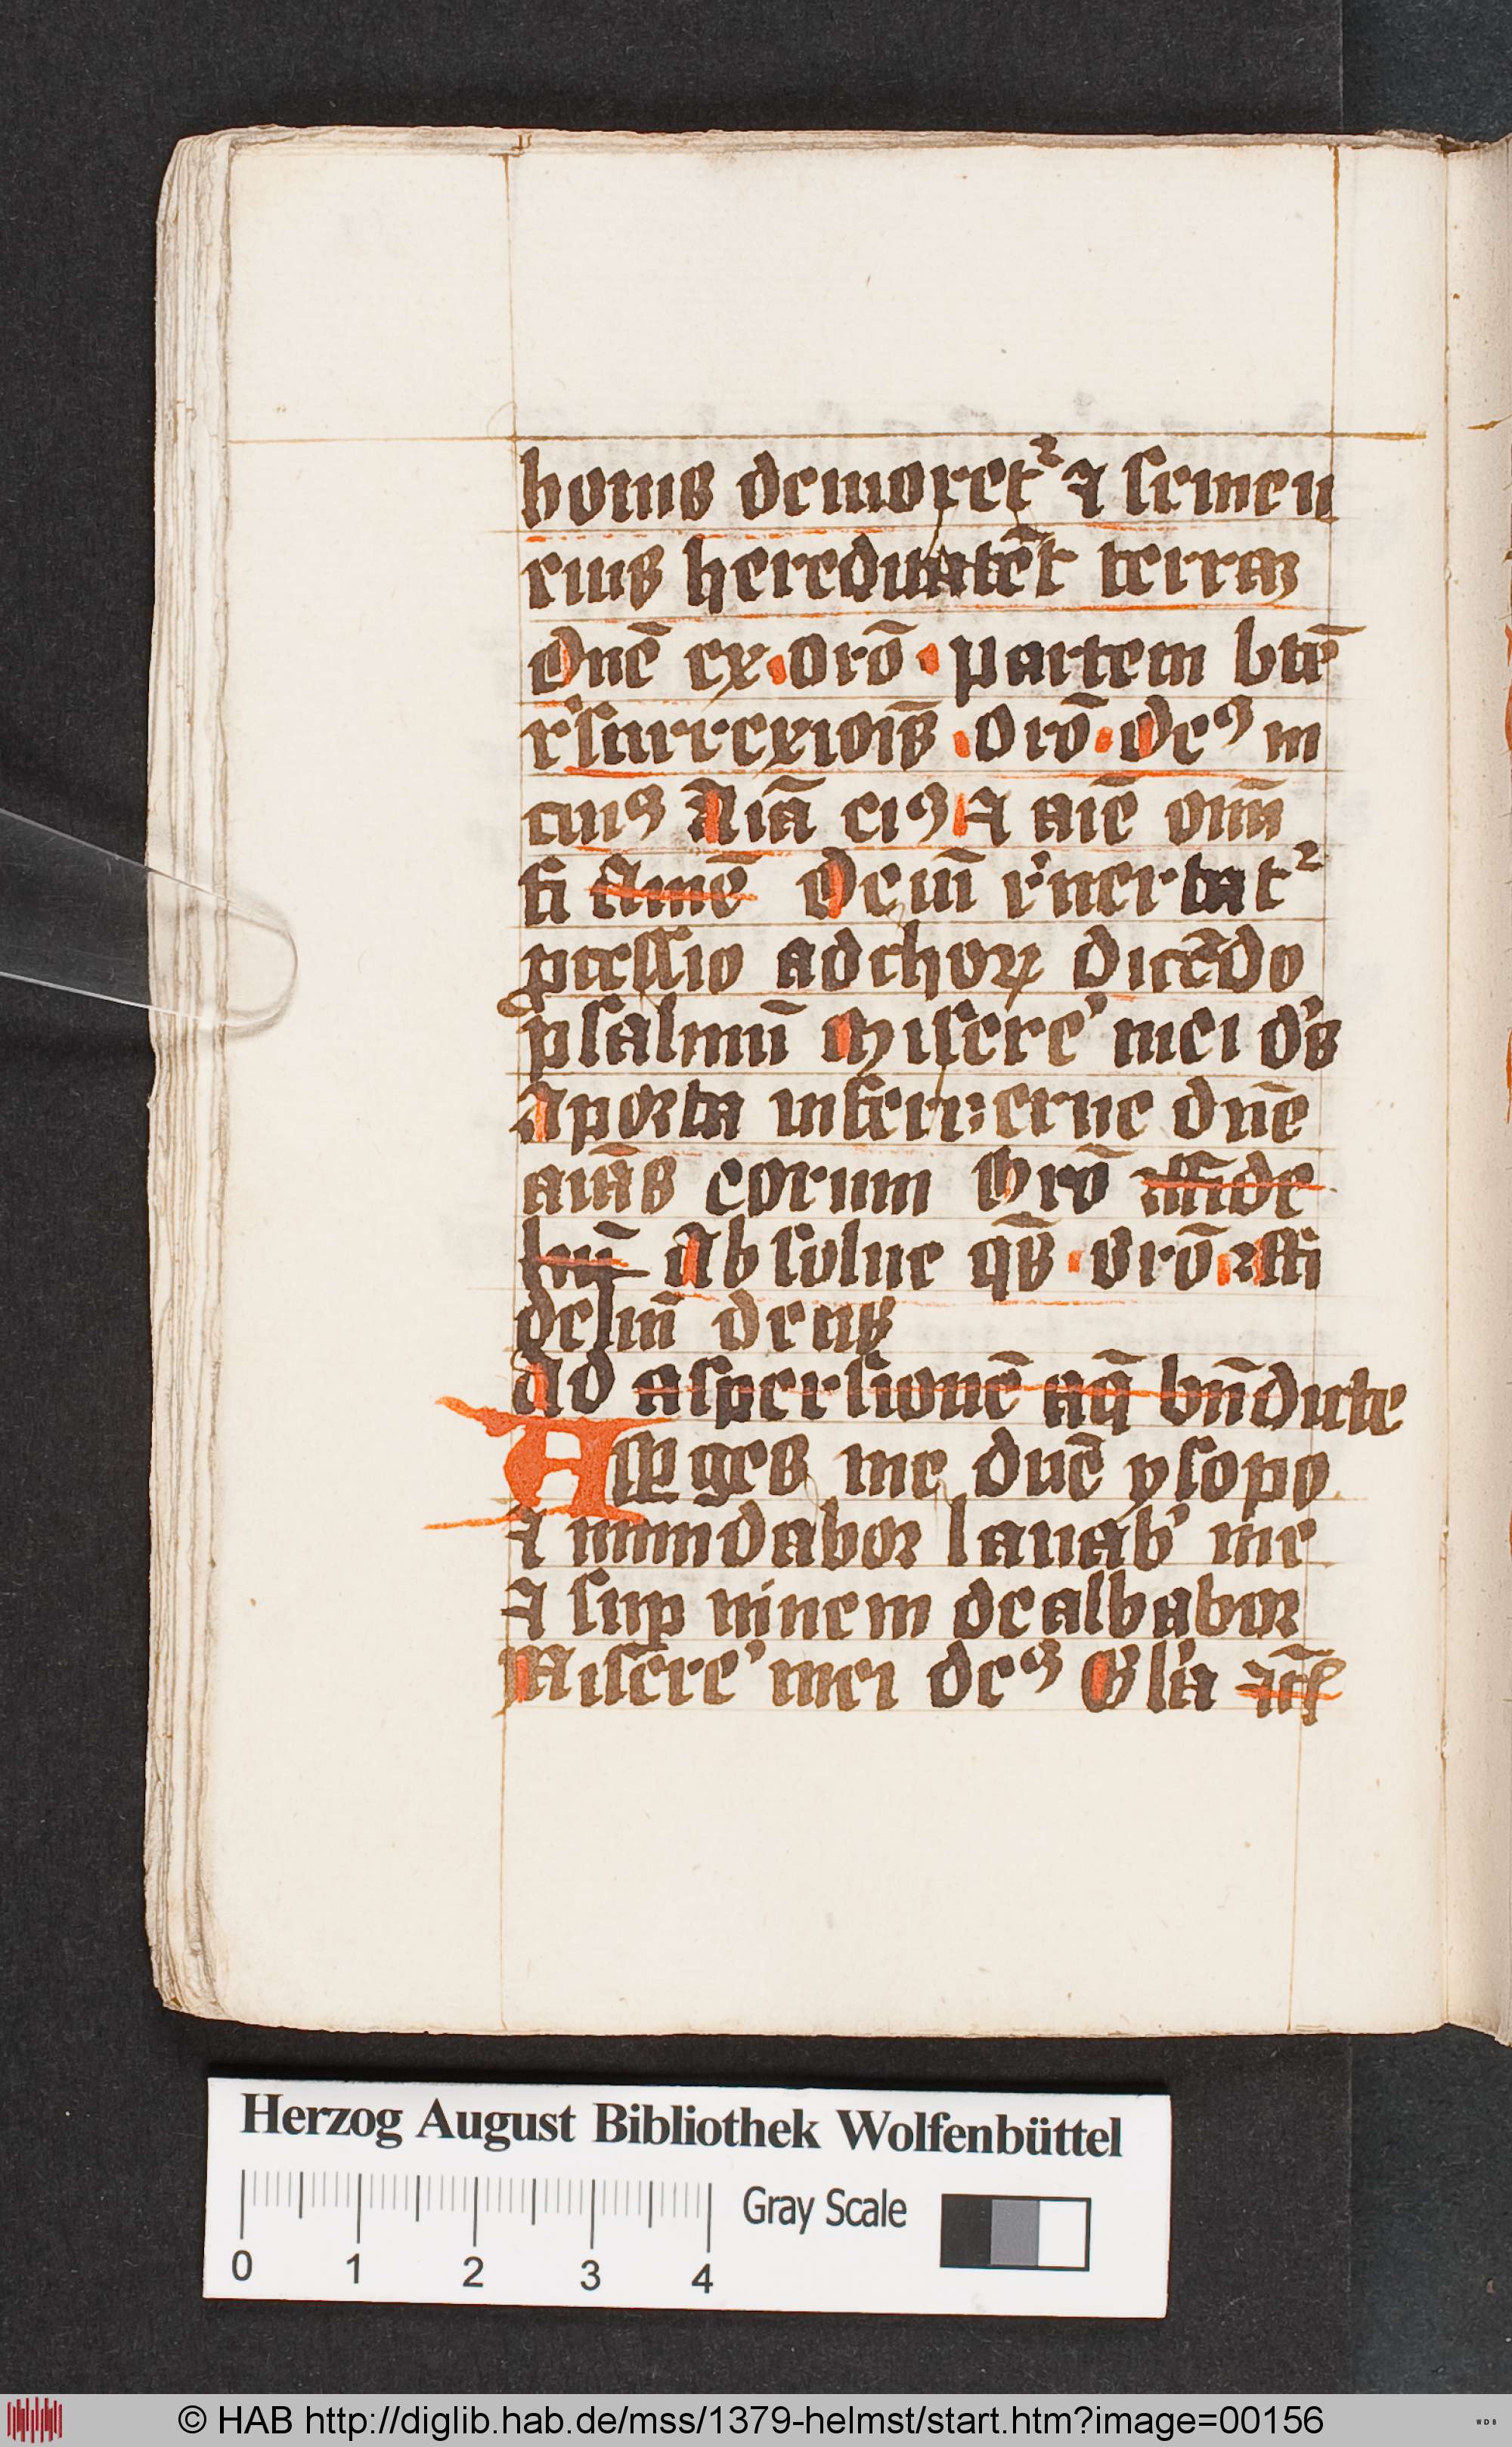 bonis demoret᷑ ⁊ semen
eius hereditatēt terraꝫ
Dnē ex. orō. partem btē
r̉surrexiōīs. Orō. Deꝰ in
cuiꝰ Aīā eiꝰ ⁊ aīe omīu
fi Amē Deīn r̉uertat᷑
ꝓcessio ad choꝝ dicēdo
psalmū Misere᾽ mei ds̉
A porta inferi: erue dnē
aīās eorum Orō
Absolue qs̄. orō ⁊ ffi
deliū deus
Ad aspersionē aq̄ bn̄dicte
Asꝑges me dnē ysopo
⁊ mundabor lauab᾽ me
⁊ suꝑ niuem dealbabor
Misere᾽ mei deꝰ Gl᾽ia ⁊c̄
Herzog August Bibliothek Wolfenbüttel
0 1 2 3 4 Gray Scale
© HAB http://diglib.hab.de/mss/1379-helmst/start.htm?image=00156